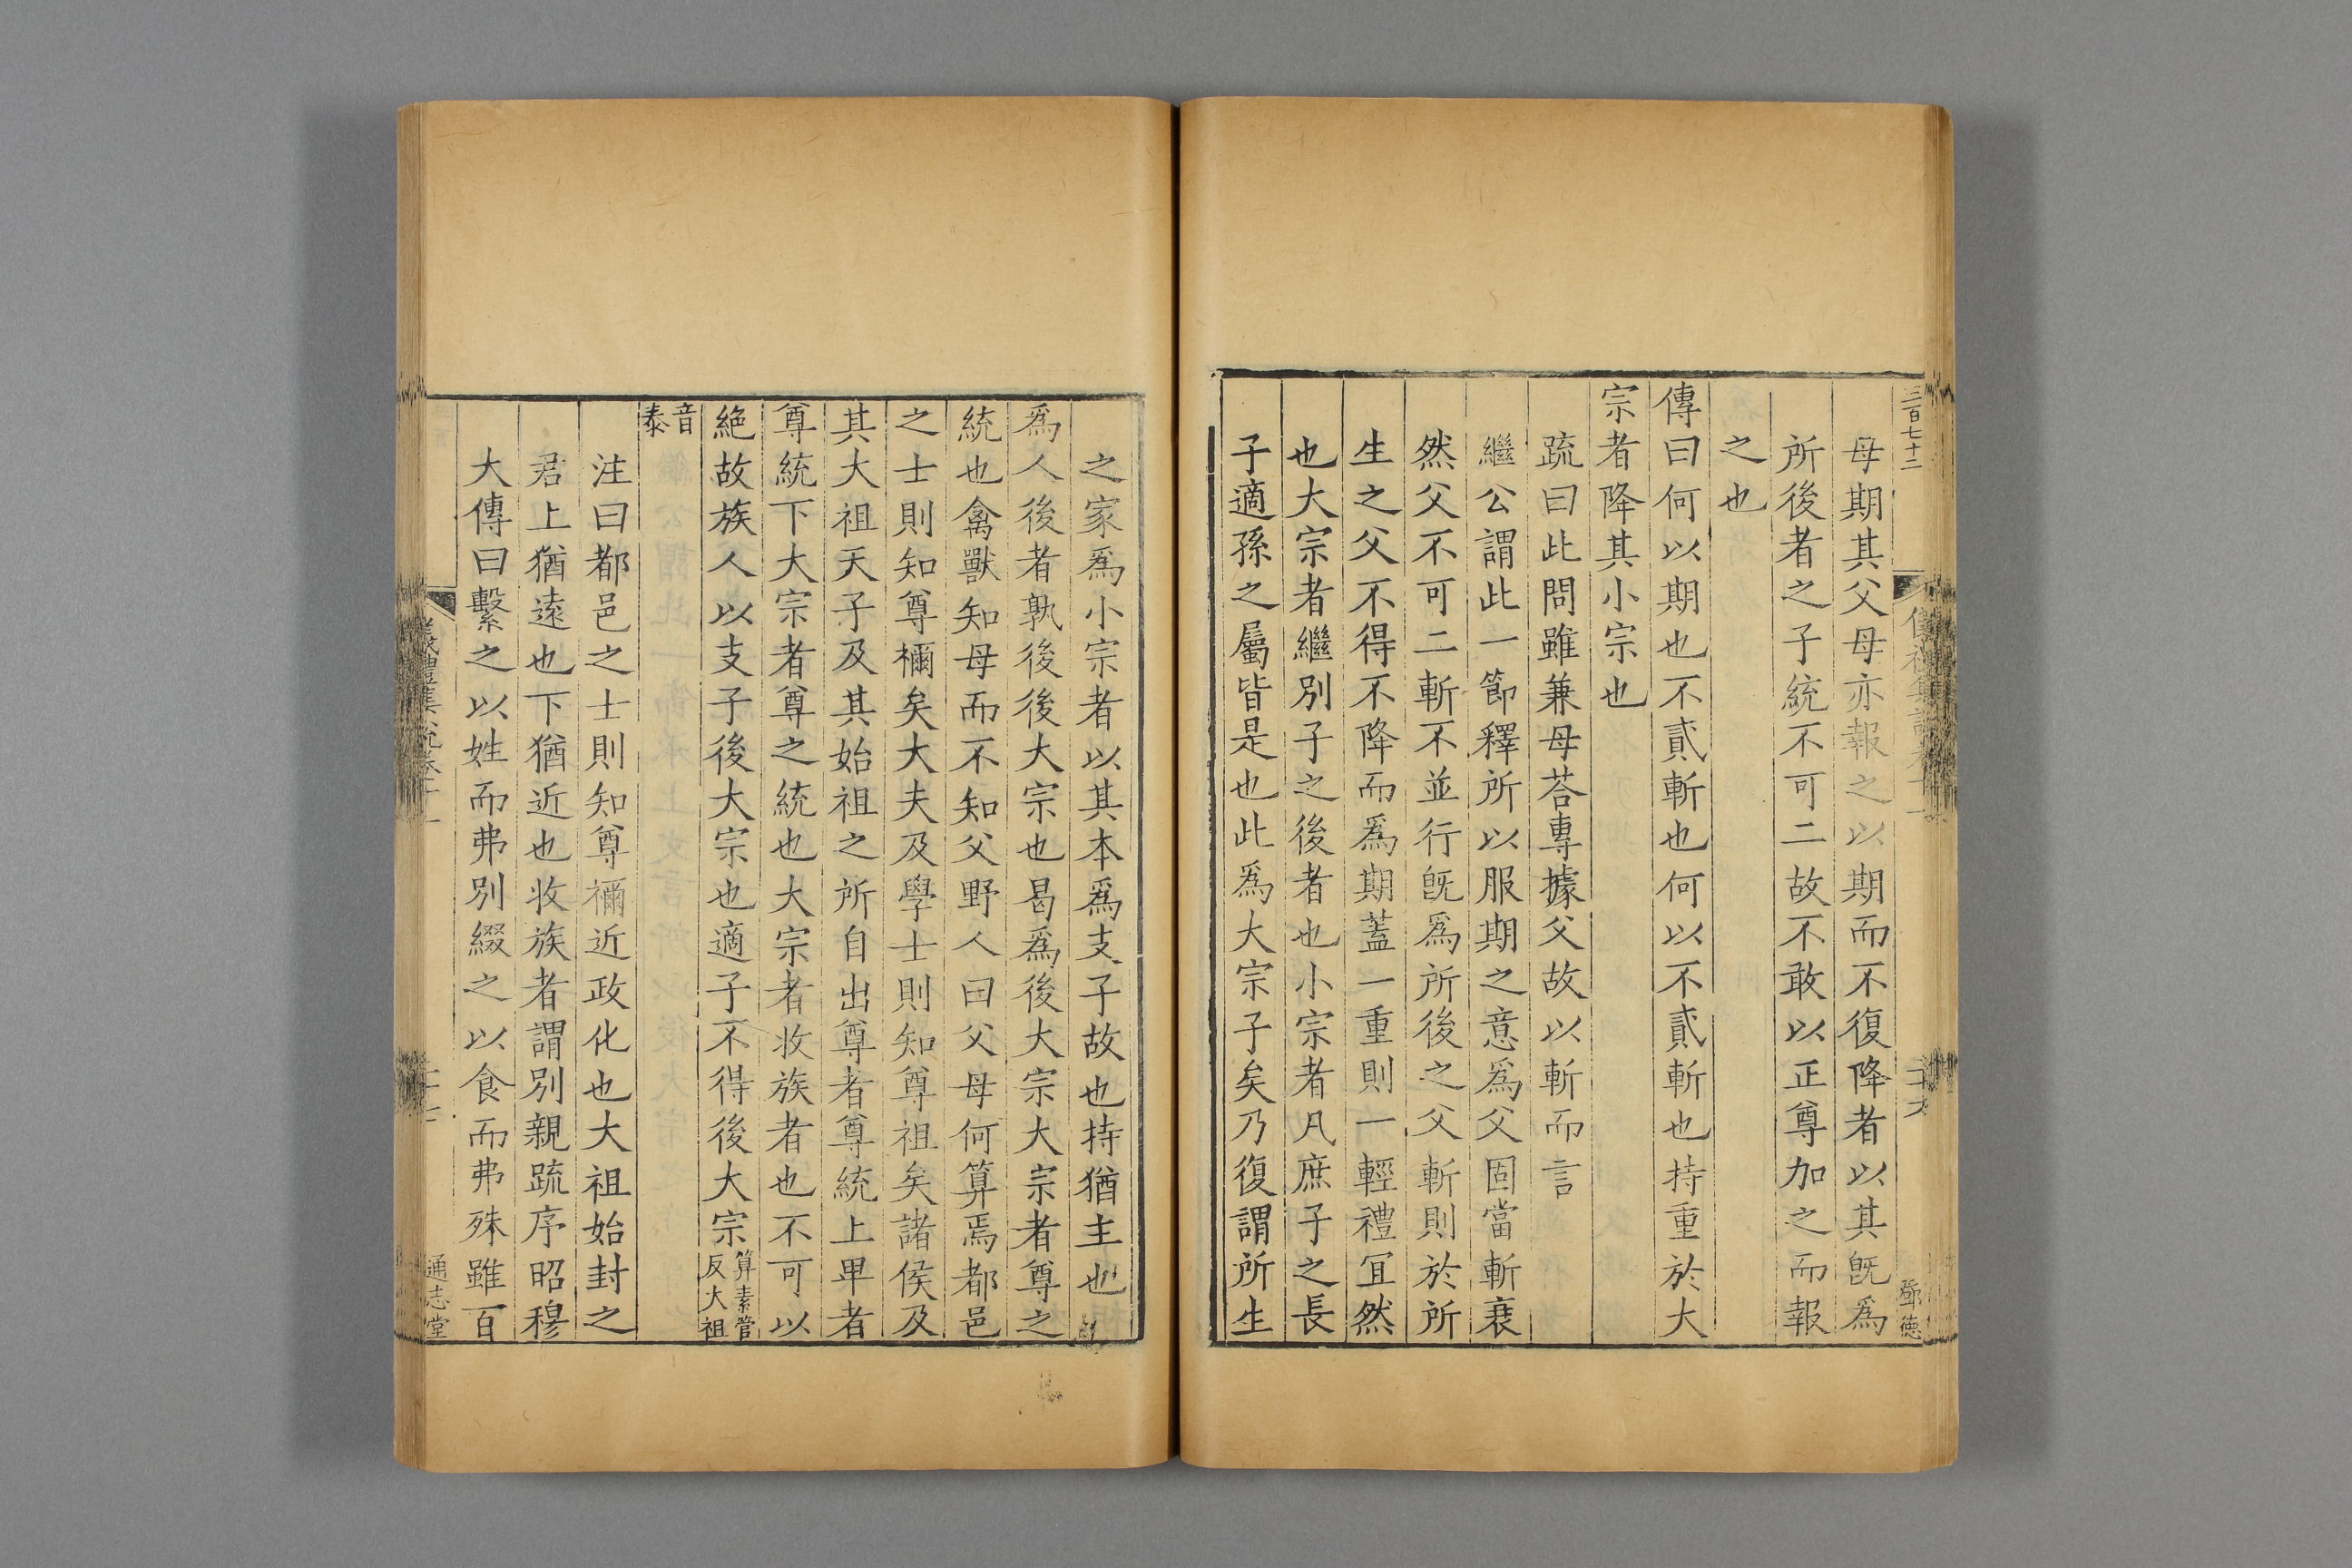 三百七十二
儀禮集說卷十一
鄧德
母期其父母亦報之以期而不復降者以其旣爲
所後者之子統不可二故不敢以正尊加之而報
之也
傳曰何以期也不貳斬也何以不貳斬也持重於大
宗者降其小宗也
疏曰此問雖兼母荅專據父故以斬而言
繼公謂此一節釋所以服期之意爲父固當斬衰
然父不可二斬不並行旣爲所後之父斬則於所
生之父不得不降而爲期蓋一重則一輕禮宜然
也大宗者繼別子之後者也小宗者凡庶子之長
子適孫之屬皆是也此爲大宗子矣乃復謂所生
之家爲小宗者以其本爲支子故也持猶主也
爲人後者孰後後大宗也曷爲後大宗大宗者尊之
統也禽獸知母而不知父野人曰父母何算焉都邑
之士則知尊禰矣大夫及學士則知尊祖矣諸侯及
其大祖天子及其始祖之所自出尊者尊統上卑者
尊統下大宗者尊之統也大宗者收族者也不可以
絕故族人以支子後大宗也適子不得後大宗算素管
反大祖
音
泰
注曰都邑之士則知尊禰近政化也大祖始封之
君上猶遠也下猶近也收族者謂別親疏序昭穆
大傳曰繫之以姓而弗別綴之以食而弗殊雖百
儀禮集說卷十一
二十七
通志堂